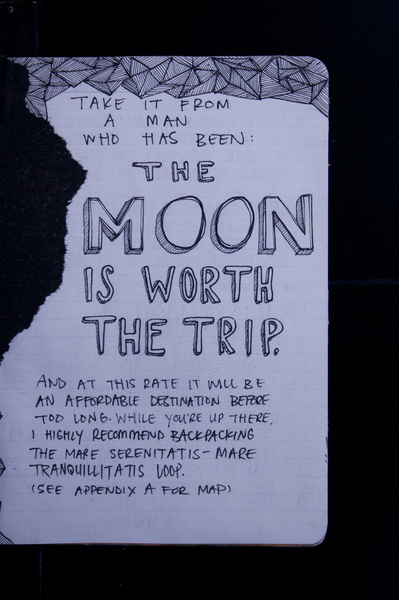 TAKE IT FROM
A MAN
WHO HAS BEEN:
THE
MOON
IS WORTH
THE TRIP.
AND AT THIS RATE IT WILL BE
AN AFFORDABLE DESTINATION BEFORE
TOO LONG. WHILE YOU'RE UP THERE,
I HIGHLY RECOMMEND BACKPACKING
THE MARE SERENITATIS - MARE
TRANQUILLITATIS LOOP.
(SEE APPENDIX A FOR MAP)